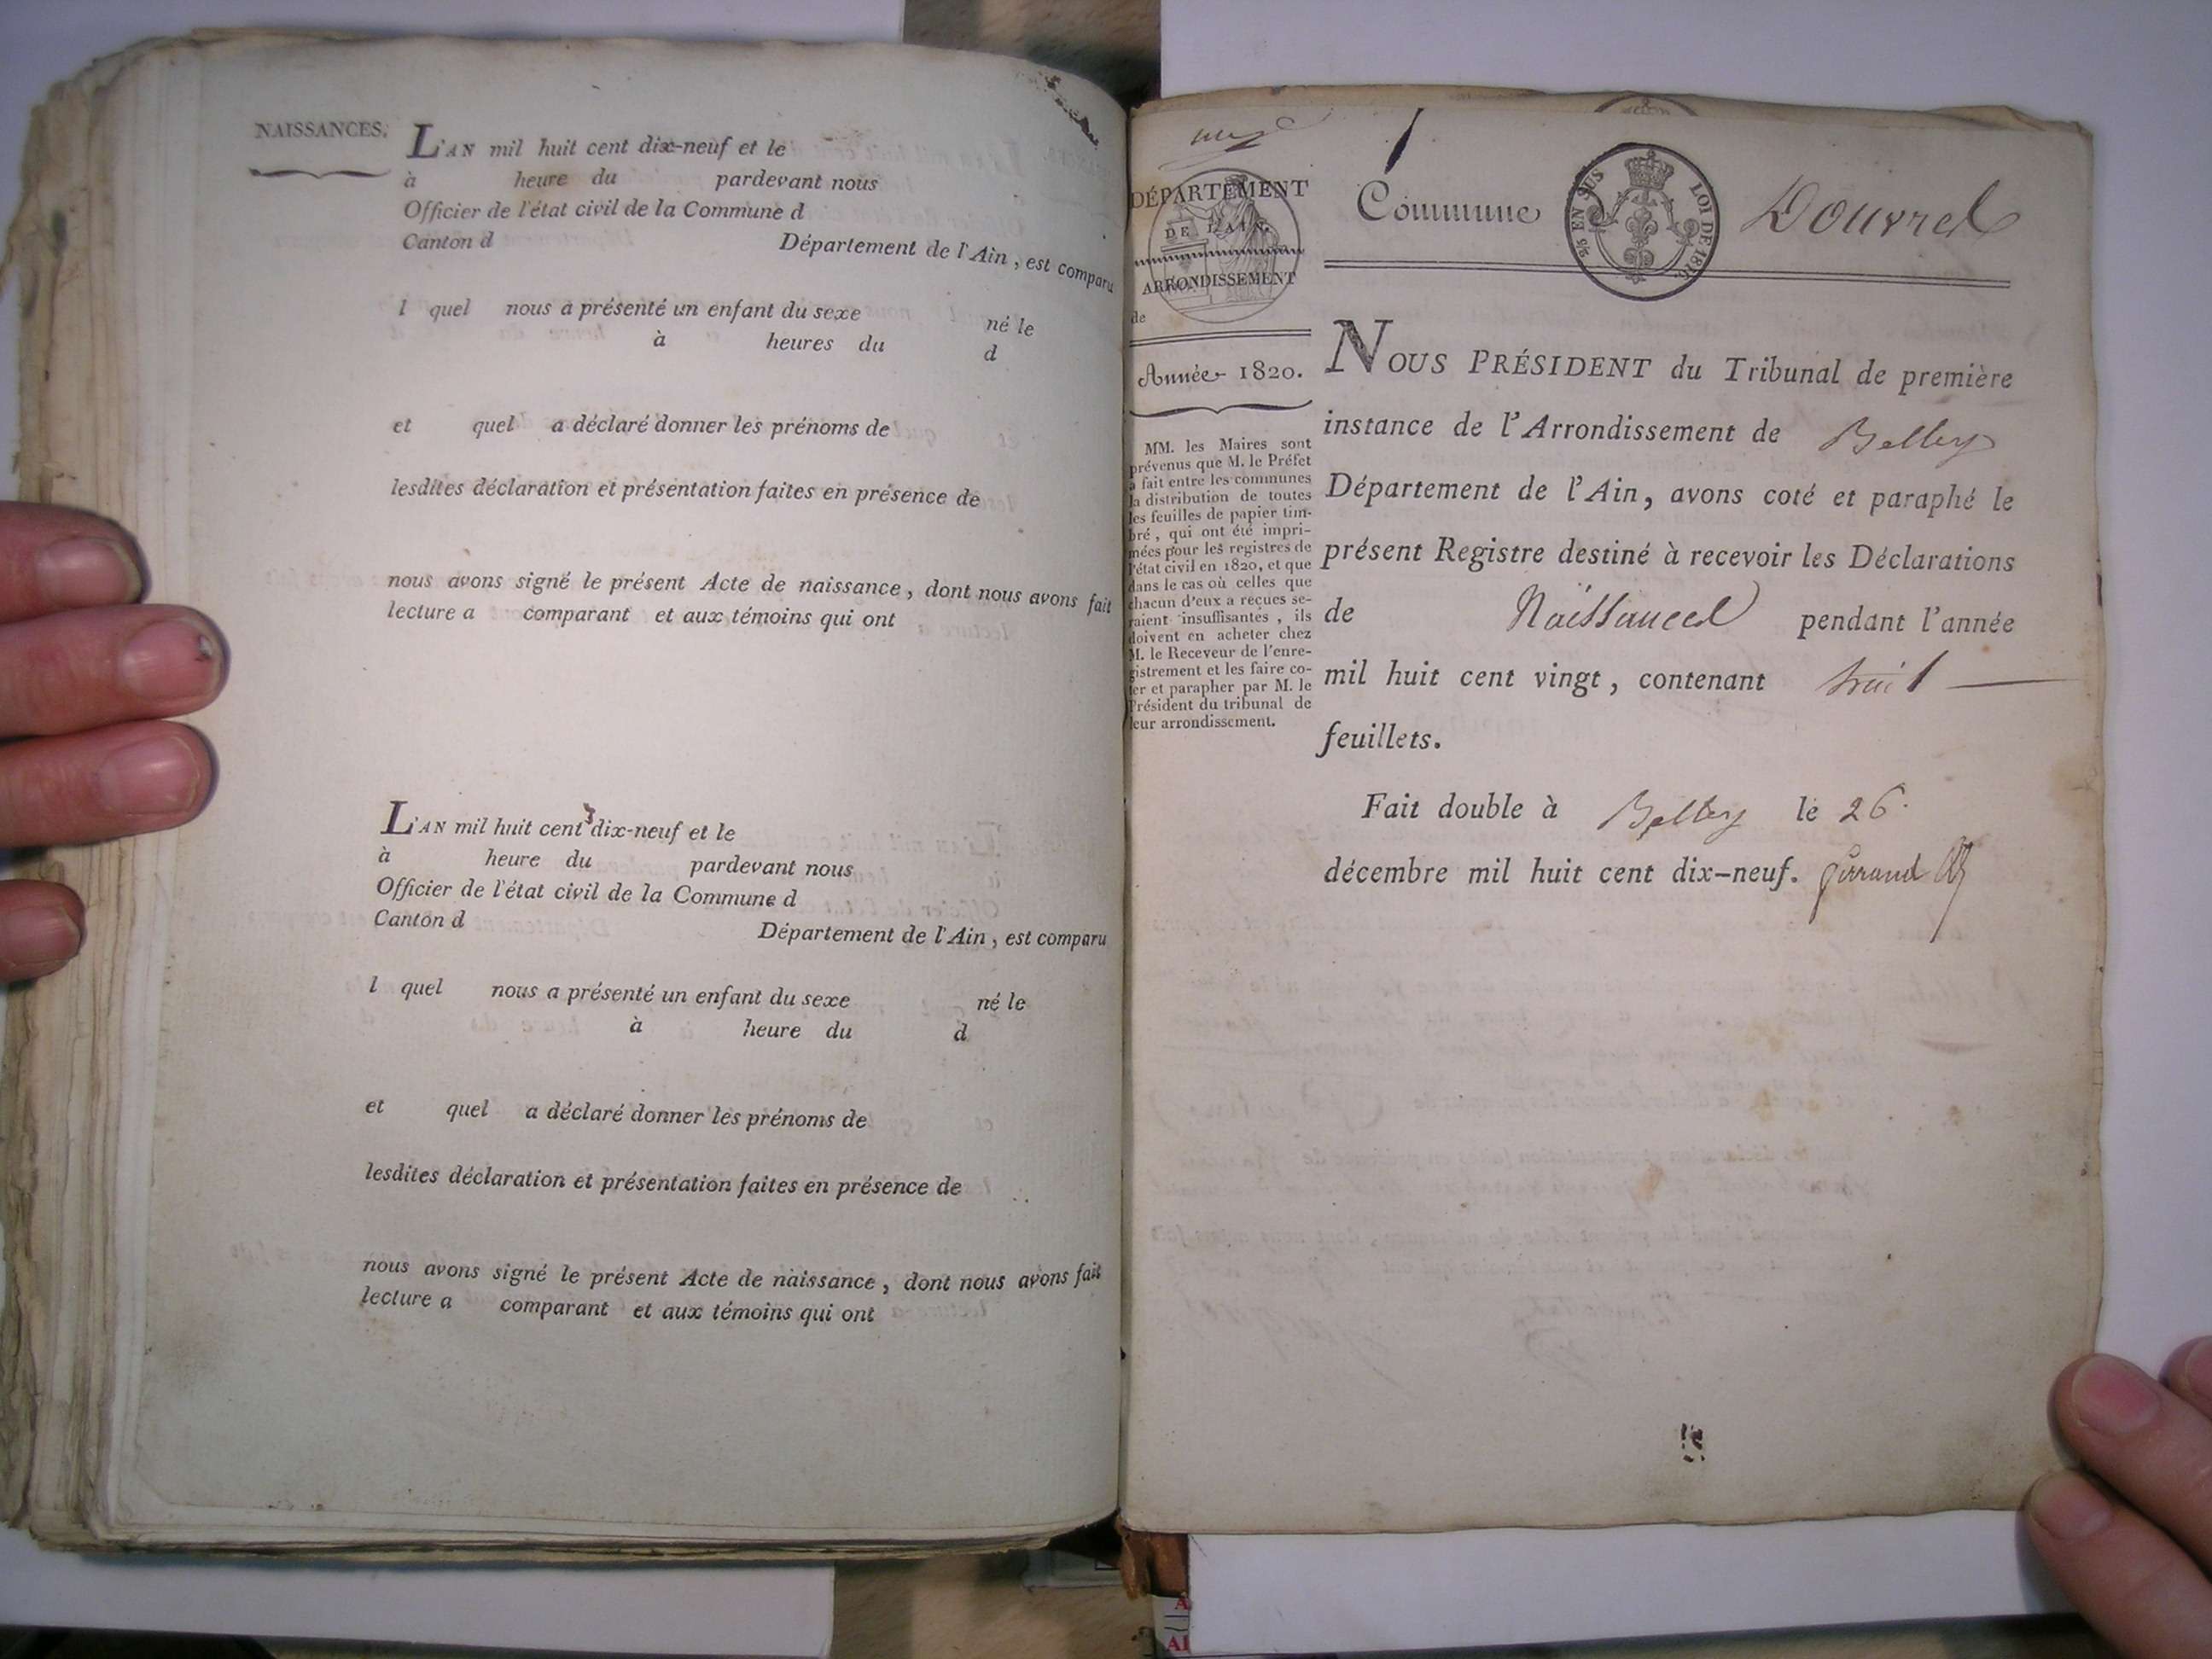 NAISSANCES.
L'AN mil huit cent dix-neuf et le
à heure du pardevant nous
Officier de l'état civil de la Commune d
Canton d Département de l'Ain, est comparu
l quel nous a présenté un enfant du sexe né le
à heures du d
et quel a déclaré donner les prénoms de
lesdites déclaration et présentation faites en présence de
nous avons signé le présent Acte de naissance, dont nous avons fait
lecture a comparant et aux témoins qui ont
L'AN mil huit cent dix-neuf et le
à heure du pardevant nous
Officier de l'état civil de la Commune d
Canton d Département de l'Ain, est comparu
l quel nous a présenté un enfant du sexe né le
à heure du d
et quel a déclaré donner les prénoms de
lesdites déclaration et présentation faites en présence de
nous avons signé le présent Acte de naissance, dont nous avons fait
lecture a comparant et aux témoins qui ont
DÉPARTEMENT
DE L'AIN.
ARRONDISSEMENT
de
Année 1820.
MM. les Maires sont
prévenus que M. le Préfet
a fait entre les communes
la distribution de toutes
les feuilles de papier tim-
bré, qui ont été impri-
mées pour les registres de
l'état civil en 1820, et que
dans le cas où celles que
chacun d'eux a reçues se-
raient insuffisantes, ils
doivent en acheter chez
M. le Receveur de l'enre-
gistrement et les faire co-
ter et parapher par M. le
Président du tribunal de
leur arrondissement.
1
Commune Douvres
EN SUS LOI DE 1816
NOUS PRÉSIDENT du Tribunal de première
instance de l'Arrondissement de Belley
Département de l'Ain, avons coté et paraphé le
présent Registre destiné à recevoir les Déclarations
de Naissances pendant l'année
mil huit cent vingt, contenant huit
feuillets.
Fait double à Belley le 26
décembre mil huit cent dix-neuf.